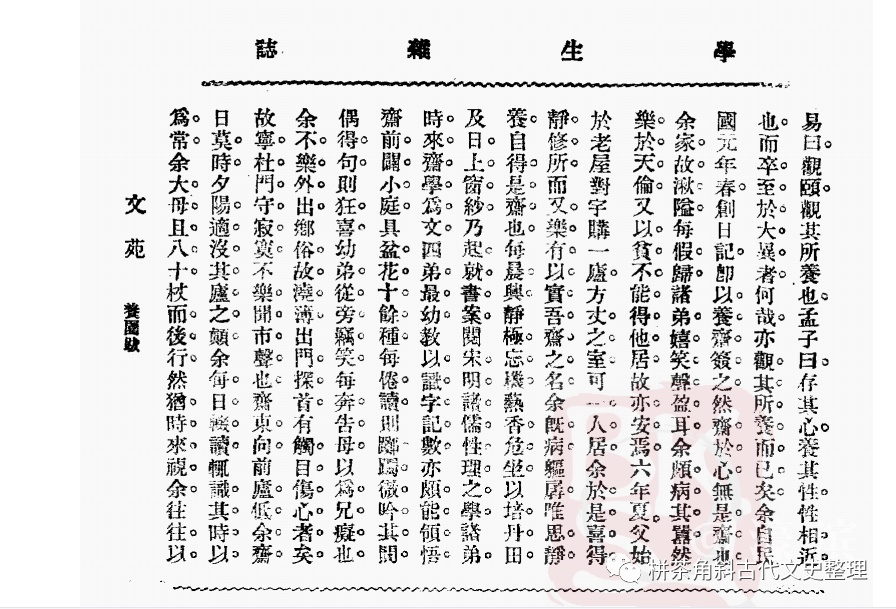 學生雜誌
易曰觀頤觀其所養也孟子曰存其心養其性性相近
也而卒至於大異者何哉亦觀其所養而已矣余自民
國元年春創日記卽以養齋簽之然齋於心無是齋也
余家故湫隘每假歸諸弟嬉笑聲盈耳余頗病其囂然
樂於天倫又以貧不能得他居故亦安焉六年夏父始
於老屋對宇購一廬方丈之室可一人居余於是喜得
靜修所而又樂有以實吾齋之名余旣病軀孱唯思靜
養自得是齋也每晨興靜極忘機爇香危坐以培丹田
及日上窗紗乃起就書案閱宋明諸儒性理之學諸弟
時來齋學爲文四弟最幼敎以識字記數亦頗能領悟
齋前闢小庭具盆花十餘種每倦讀則躑躅微吟其間
偶得句則狂喜幼弟從旁竊笑每奔告母以爲兄癡也
余不樂外出鄉俗故澆薄出門探首有觸目傷心者矣
故寧杜門守寂寞不樂聞市聲也齋東向前廬低余齋
日莫時夕陽適沒其廬之顚余每日輟讀輒識其時以
爲常余大母且八十杖而後行然猶時來視余往往以
文苑
養園
栟茶角斜古代文史整理